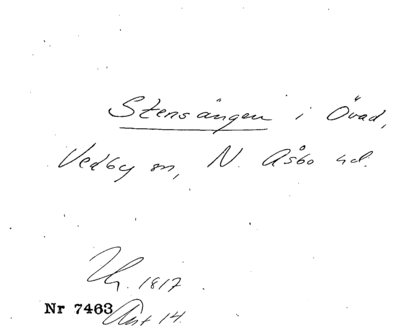 Stensängen i Övad,
Vedby sn, N. Åsbo hd.
Uh. 1817
Nr 7463 Akt 14.